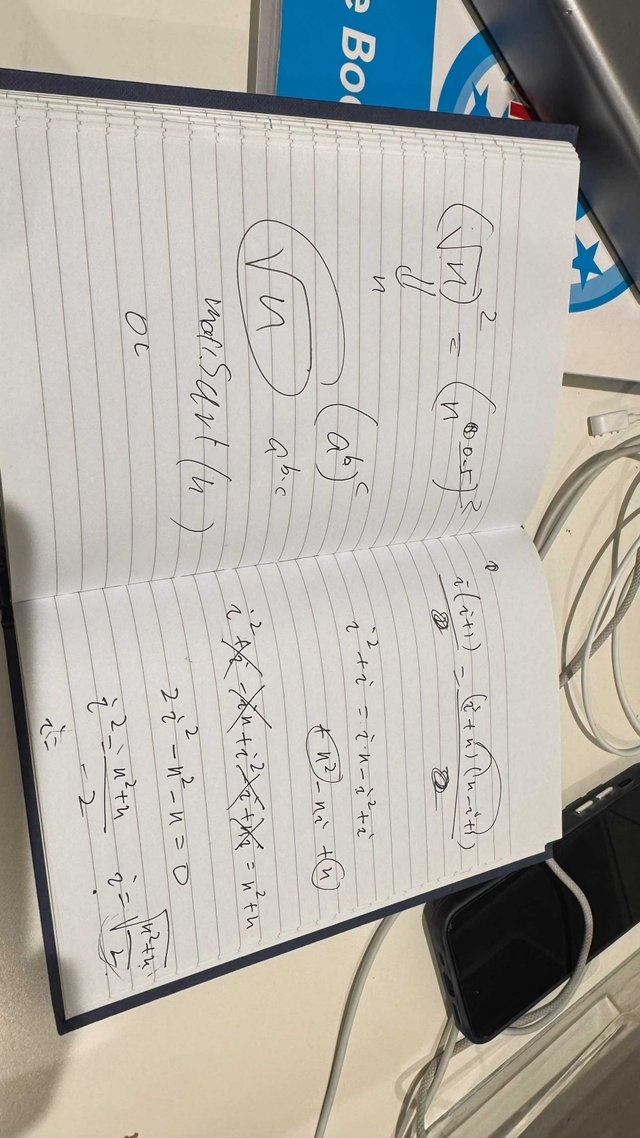 e Boo
(√n)² = (n^0.5)²
⇓
n
√n
(a^b)^c
a^b·c
Sqrt(n)
i(i+1) = (i+n)(n-i+1)
2 2
i²+i = i·n-i²+i
+n²-ni+n
i²+i-in+i²-i+ni = n²+n
2i²-n²-n=0
i² = n²+n
2
i = √
n²+n
2
i=